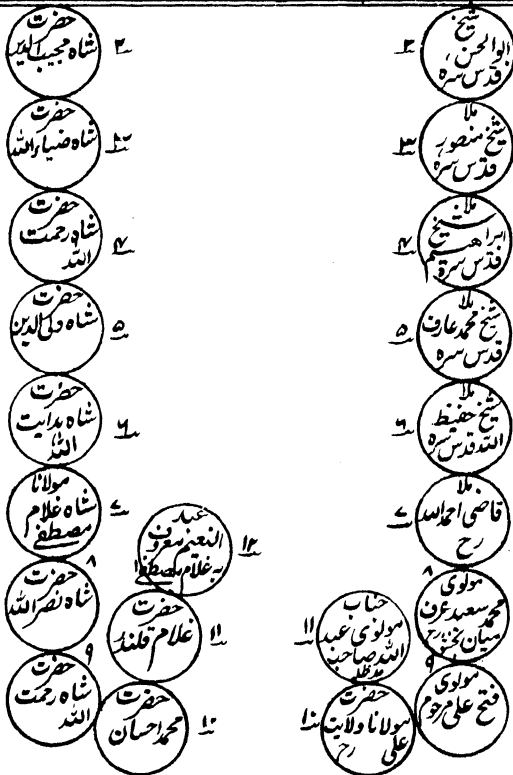 شیخ
ابوالحسن
قدس سرہ
۲
ملا
شیخ منصور
قدس سرہ
۳
ملا
شیخ
ابراھیم
قدس سرہ
۴
ملا
شیخ محمد عارف
قدس سرہ
۵
ملا
شیخ حفیظ
اللہ قدس سرہ
۶
ملا
قاضی احمد اللہ
رح
۷
۸
مولوی
محمد سعید عرف
میاں بخشو رح
۹
مولوی
فتح علی مرحوم
حضرت
مولانا ولایت
علی رح
۱۰
جناب
مولوی عبد
اللہ صاحب
مدظلہ
۱۱
حضرت
شاہ مجیب الدین
۲
حضرت
شاہ ضیاء اللہ
۳
حضرت
شاہ رحمت
اللہ
۴
حضرت
شاہ ولی الدین
۵
حضرت
شاہ ہدایت
اللہ
۶
مولانا
شاہ غلام
مصطفےٰ
۷
۸
حضرت
شاہ نصر اللہ
۹
حضرت
شاہ رحمت
اللہ
حضرت
محمد احسان
۱۰
حضرت
غلام قلندر
۱۱
عبد
النعیم معروف
بہ غلام مصطفےٰ
۱۲